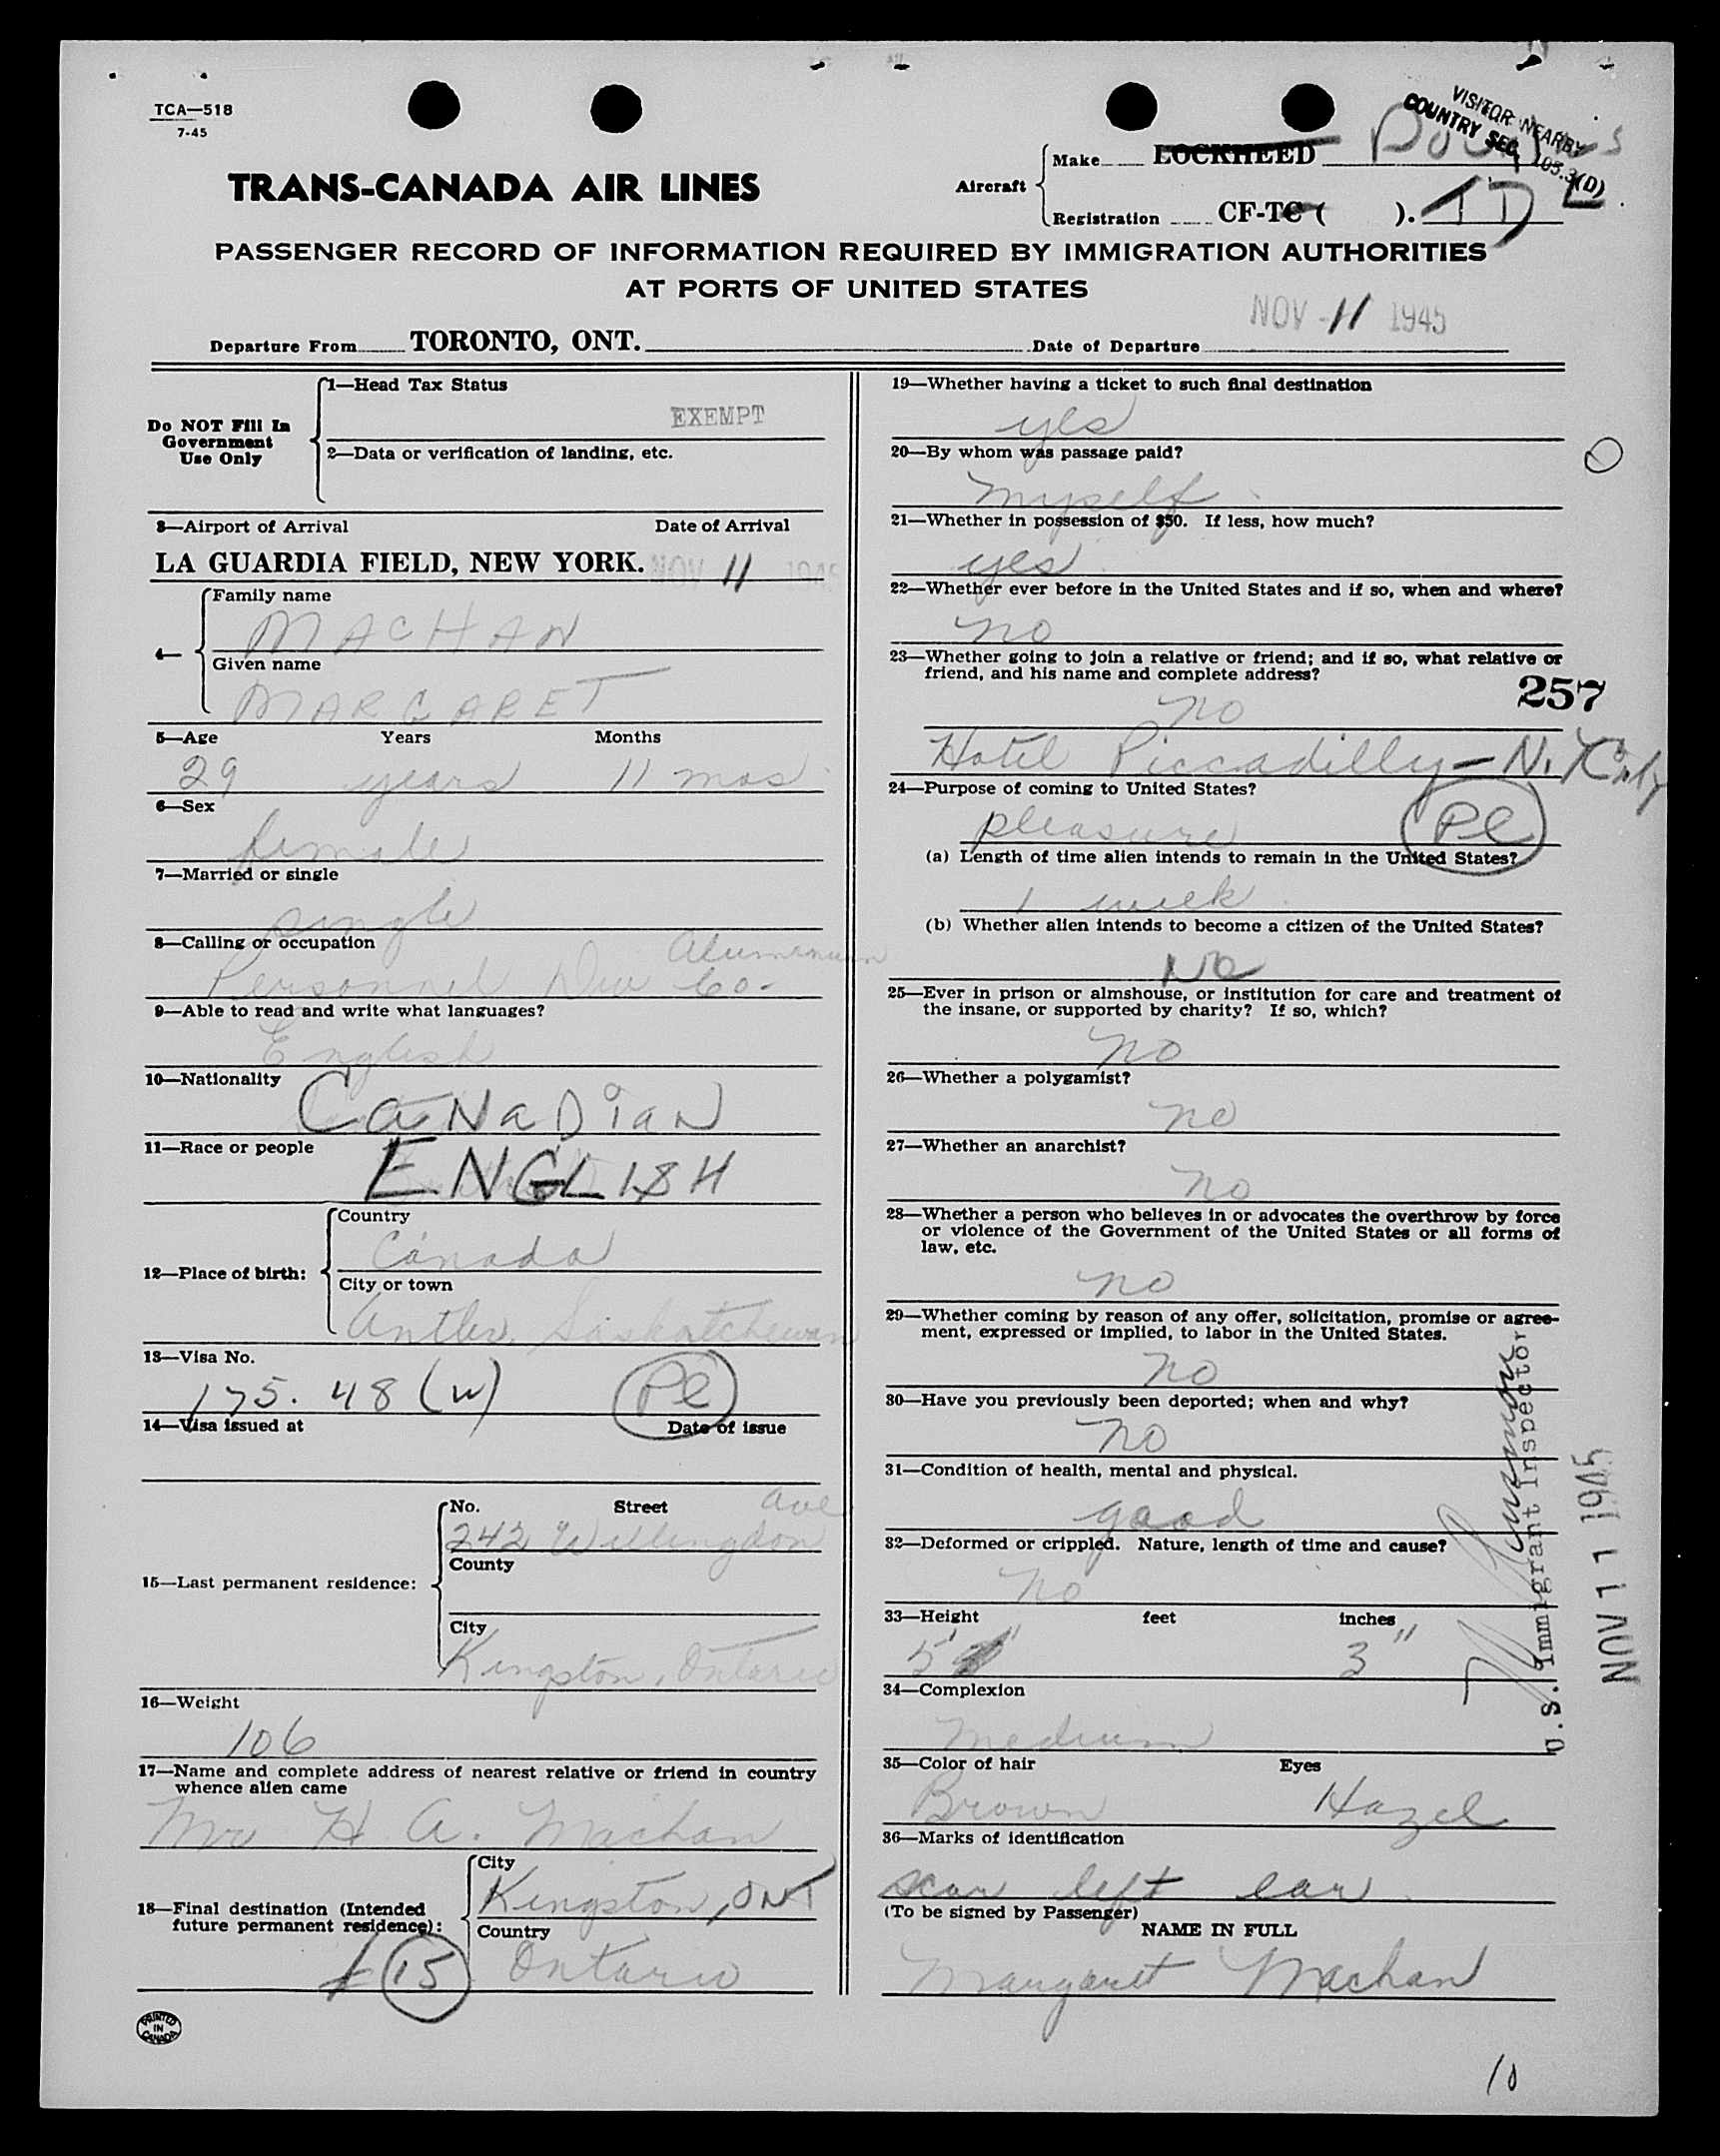 TCA—518
7-45
VISITOR NEARBY
COUNTRY SEC. 105.3(D)
TRANS-CANADA AIR LINES
Aircraft
Make LOCKHEED Douglas
Registration CF-TC ( ). TDL
PASSENGER RECORD OF INFORMATION REQUIRED BY IMMIGRATION AUTHORITIES
AT PORTS OF UNITED STATES
NOV -11 1945
Departure From TORONTO, ONT. Date of Departure
Do NOT Fill In
Government
Use Only
1—Head Tax Status
EXEMPT
2—Data or verification of landing, etc.
3—Airport of Arrival Date of Arrival
LA GUARDIA FIELD, NEW YORK. NOV 11 1945
4—
Family name
MACHAN
Given name
MARGARET
5—Age Years Months
29 years 11 mos
6—Sex
female
7—Married or single
single
8—Calling or occupation
Aluminum
Personnel Div Co.
9—Able to read and write what languages?
English
10—Nationality
CANADIAN
11—Race or people
ENGLISH
12—Place of birth:
Country
Canada
City or town
Antler, Saskatchewan
13—Visa No.
175. 48 (W) Pl
14—Visa issued at Date of issue
15—Last permanent residence:
No. Street Ave
242 Willingdon
County
City
Kingston, Ontario
16—Weight
106
17—Name and complete address of nearest relative or friend in country
whence alien came
Mr H. A. Machan
18—Final destination (Intended
future permanent residence):
City
Kingston, ONT
Country
15 Ontario
PRINTED
IN
CANADA
19—Whether having a ticket to such final destination
yes
20—By whom was passage paid?
myself
21—Whether in possession of $50. If less, how much?
yes
22—Whether ever before in the United States and if so, when and where?
no
23—Whether going to join a relative or friend; and if so, what relative or
friend, and his name and complete address?
257
no
Hotel Piccadilly — N. Y. City
24—Purpose of coming to United States?
pleasure Pl
(a) Length of time alien intends to remain in the United States?
1 week
(b) Whether alien intends to become a citizen of the United States?
No
25—Ever in prison or almshouse, or institution for care and treatment of
the insane, or supported by charity? If so, which?
no
26—Whether a polygamist?
no
27—Whether an anarchist?
no
28—Whether a person who believes in or advocates the overthrow by force
or violence of the Government of the United States or all forms of
law, etc.
no
29—Whether coming by reason of any offer, solicitation, promise or agree-
ment, expressed or implied, to labor in the United States.
no
30—Have you previously been deported; when and why?
no
31—Condition of health, mental and physical.
good
32—Deformed or crippled. Nature, length of time and cause?
no
33—Height feet inches
5' 3"
34—Complexion
Medium
35—Color of hair Eyes
Brown Hazel
36—Marks of identification
scar left ear
(To be signed by Passenger)
NAME IN FULL
Margaret Machan
U.S. Immigrant Inspector
NOV 11 1945
10